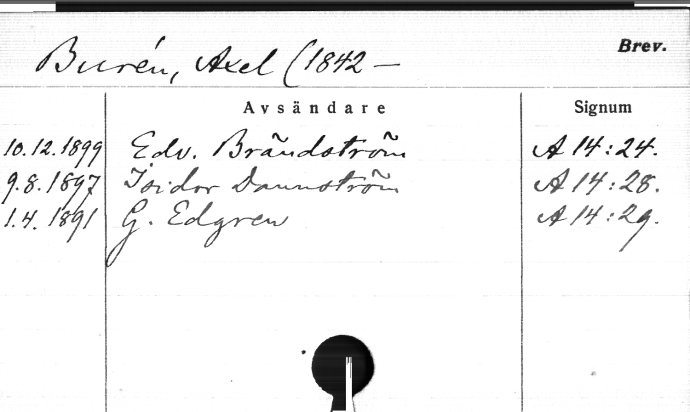 Brev.
Burén, Axel (1842 —
Avsändare Signum
10.12.1899 Edv. Brändström A 14:24.
9.8.1897 Isidor Dannström A 14:28.
1.4.1891 G. Edgren A 14:29.